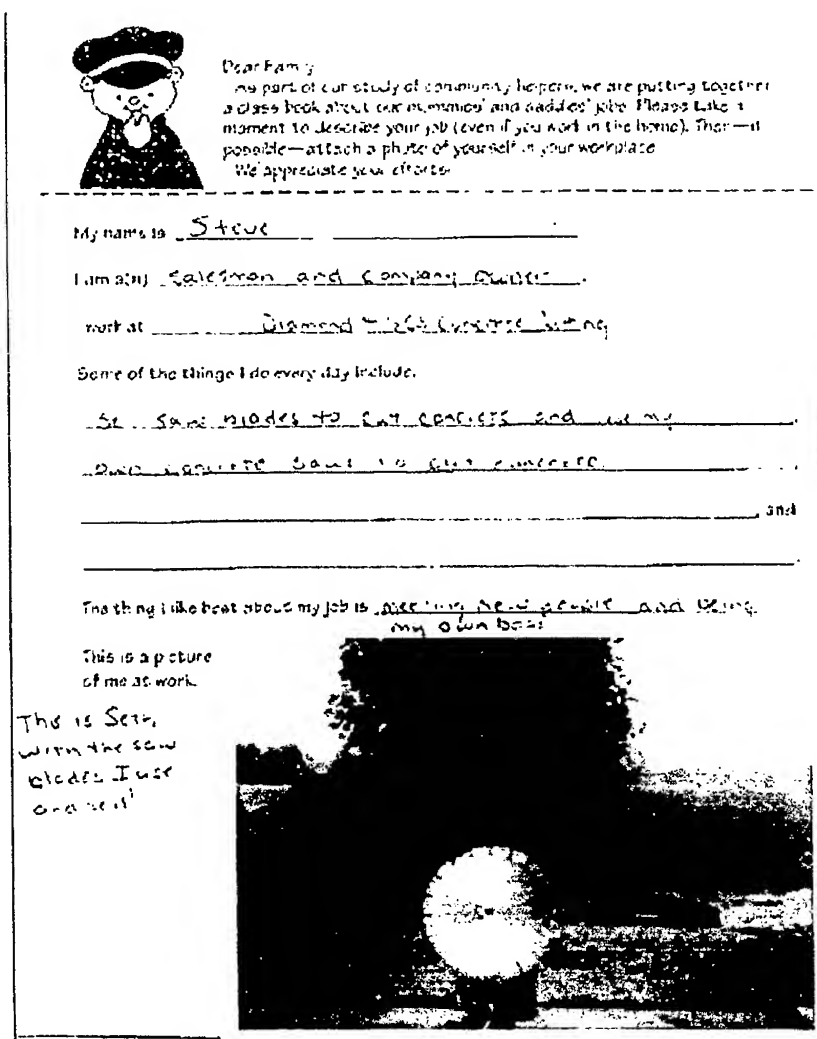 Dear Family
As part of our study of community helpers, we are putting together
a class book about our mommies' and daddies' jobs. Please take a
moment to describe your job (even if you work in the home). Then—if
possible—attach a photo of yourself in your workplace
We appreciate your efforts.
My name is Steve
I am a(n) Salesman and Company Owner.
work at Diamond Concrete
Some of the things I do every day include.
saw blades to cut concrete and my
own concrete saws to cut concrete
, and
The thing I like best about my job is meeting new people and being
my own boss
This is a picture
of me at work.
This is Seth
with the saw
blades I use
and sell